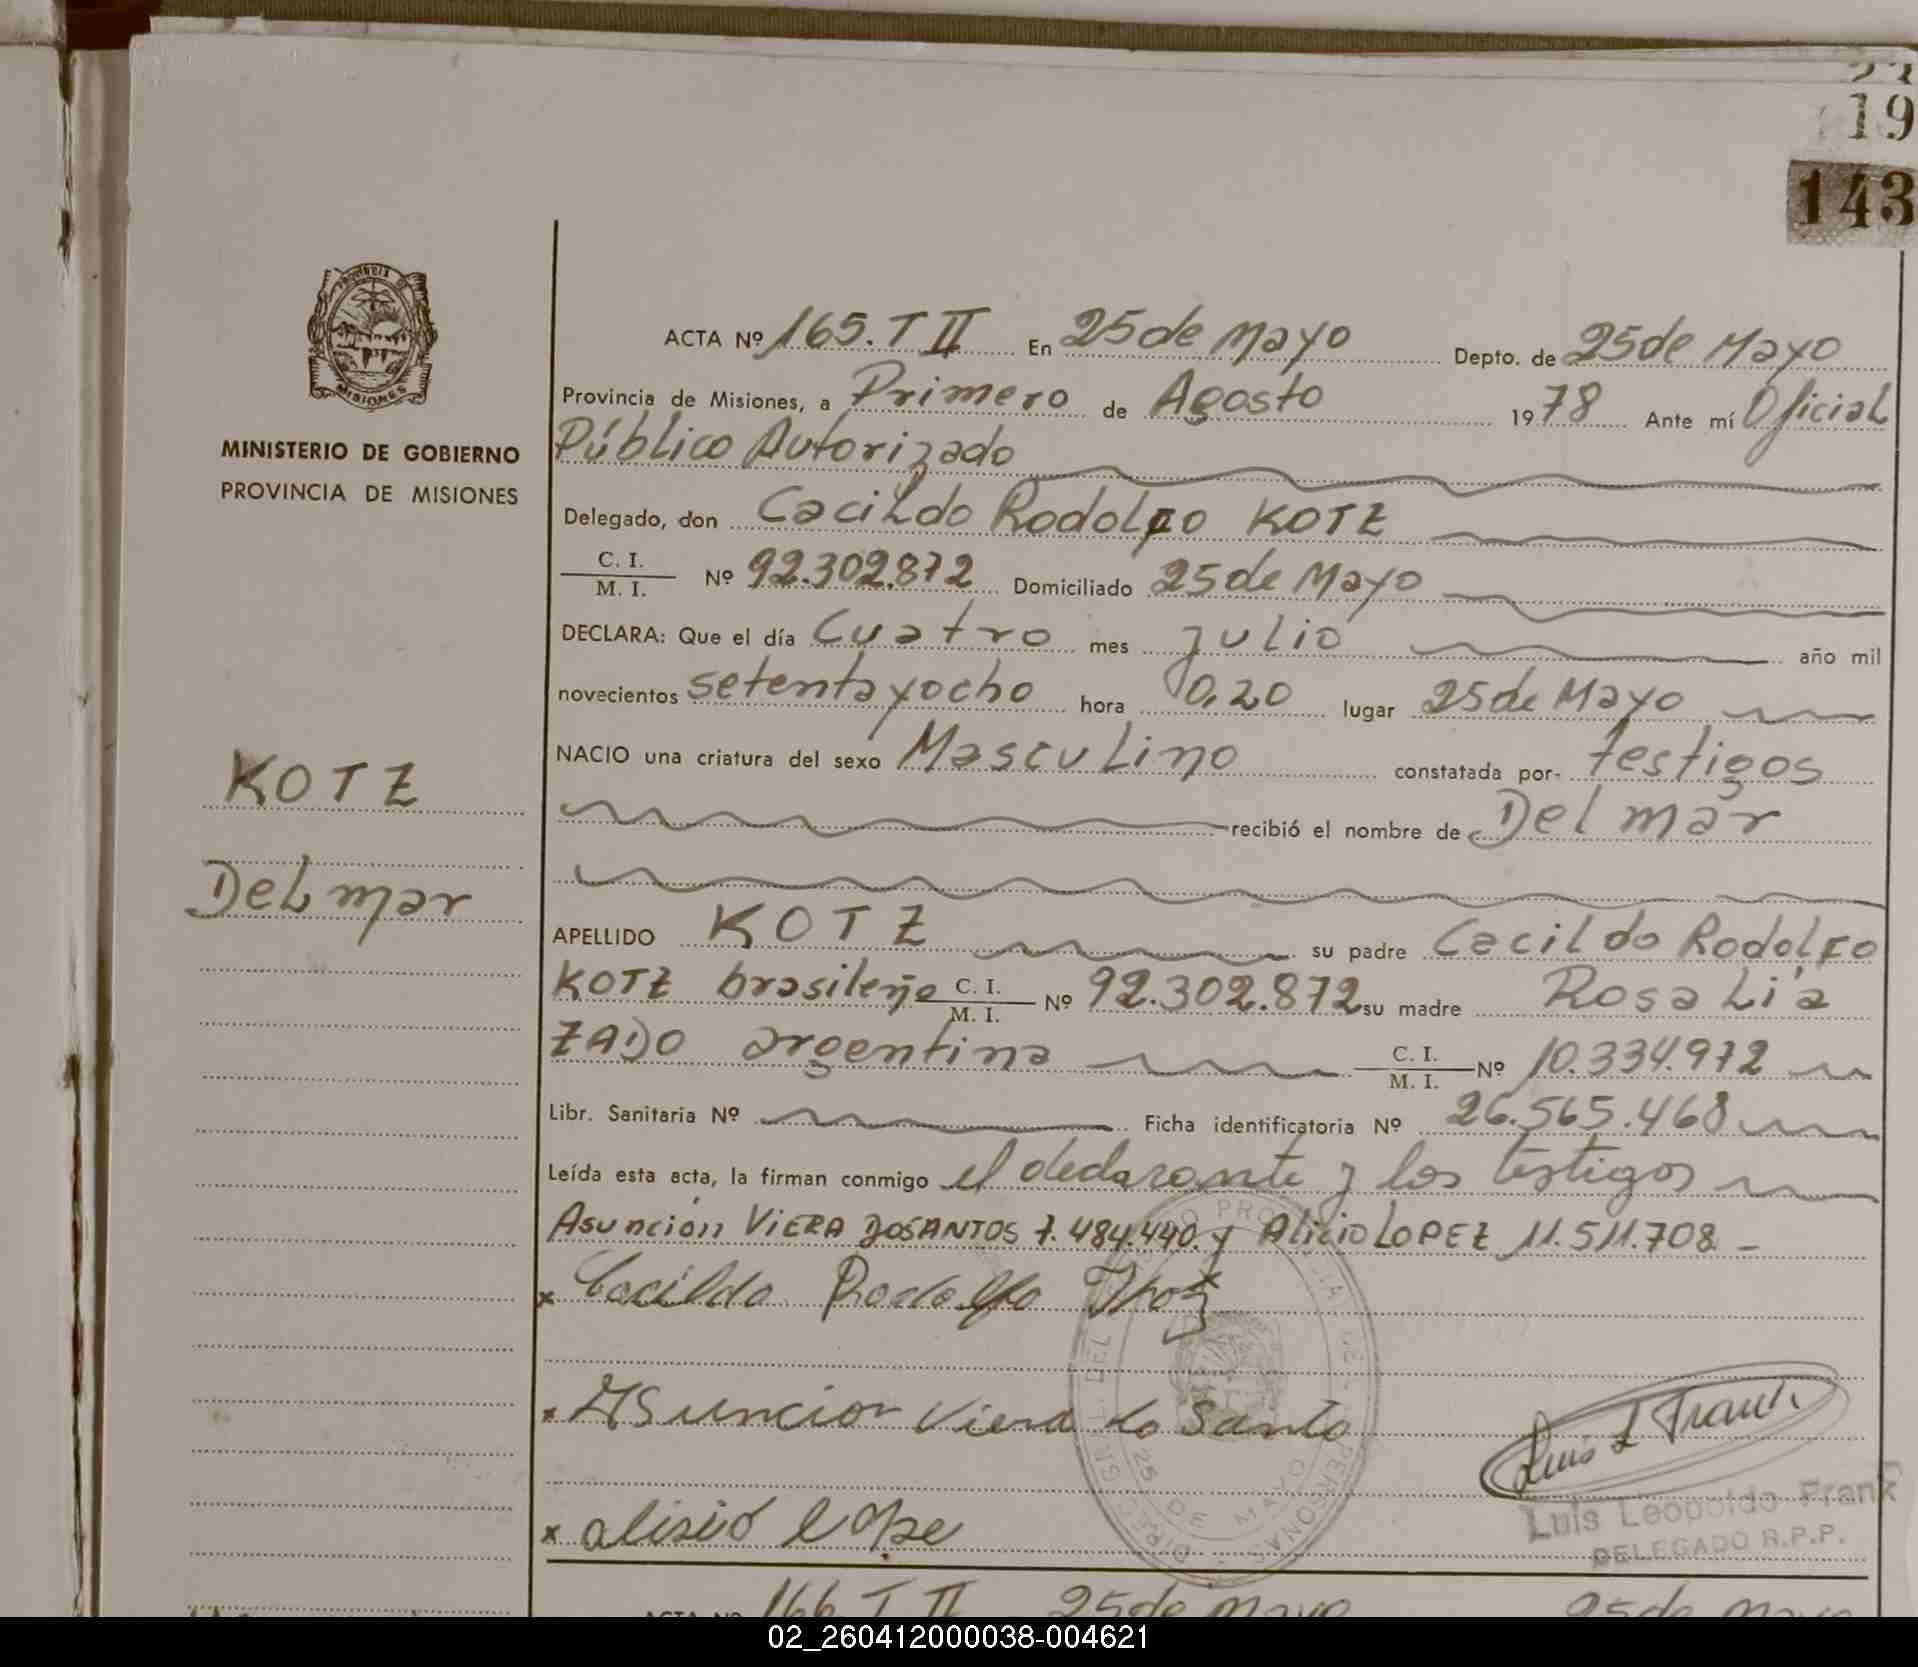 19
143
PROVINCIA
MISIONES
MINISTERIO DE GOBIERNO
PROVINCIA DE MISIONES
KOTZ
Delmar
ACTA Nº 165. T II En 25 de Mayo Depto. de 25 de Mayo
Provincia de Misiones, a Primero de Agosto 1978 Ante mí Oficial
Público Autorizado
Delegado, don Cacildo Rodolfo KOTZ
C. I. / M. I. Nº 92.302.872 Domiciliado 25 de Mayo
DECLARA: Que el día Cuatro mes julio año mil
novecientos setenta y ocho hora 0,20 lugar 25 de Mayo
NACIO una criatura del sexo Masculino constatada por- testigos
recibió el nombre de Delmar
APELLIDO KOTZ su padre Cacildo Rodolfo
KOTZ brasileño C. I. / M. I. Nº 92.302.872 su madre Rosalía
ZADO argentina C. I. / M. I. Nº 10.334.972
Libr. Sanitaria Nº Ficha identificatoria Nº 26.565.468
Leída esta acta, la firman conmigo el declarante y los testigos
Asunción VIERA DOSANTOS 7.484.440. y Alicio LOPEZ 11.511.708 -
x Cacildo Rodolfo
x Asuncion Viera do Santo
Luis L Frank
Luis Leopoldo Frank
DELEGADO R.P.P.
x alisio lope
25 DE MAYO
ACTA Nº 166 T II 25 de Mayo 25 de Mayo
02_260412000038-004621